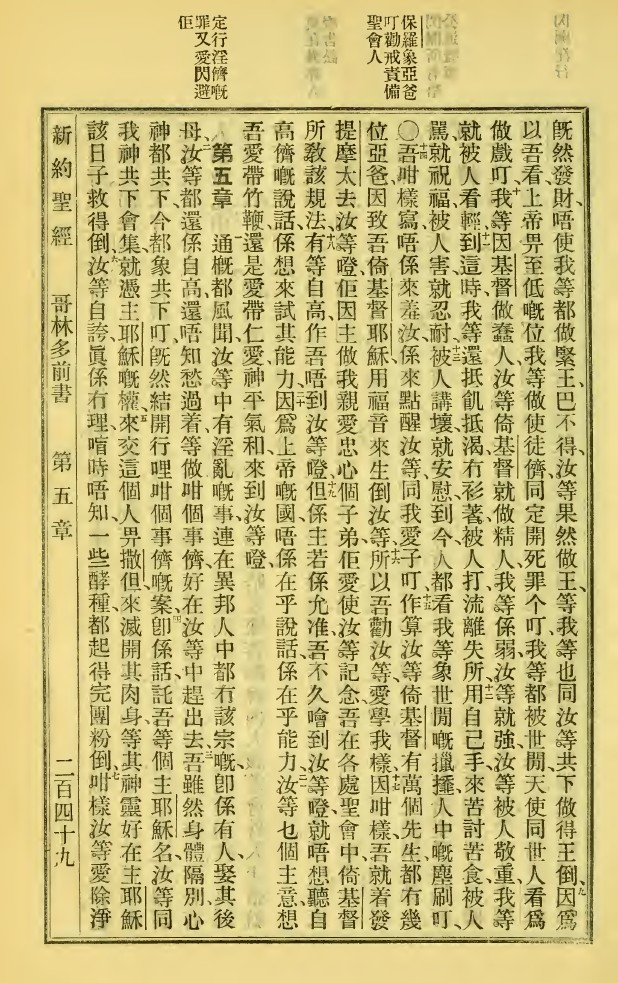 保羅象亞爸
叮勸戒責備
聖會人
定行淫儕嘅
罪又愛閃避
佢
既然發財、唔使我等都做緊王、巴不得、汝等果然做王、等我等也同汝等共下做得王倒、九因爲
以吾看上帝畀至低嘅位我等做使徒儕、同定開死罪个叮、我等都被世間天使同世人看爲
做戲叮、十我等因基督做蠢人、汝等倚基督就做精人、我等係弱、汝等就強、汝等被人敬重、我等
就被人看輕、十一到這時我等還抵飢抵渴冇衫著、被人打、流離失所、十二用自己手來苦討苦食、被人
罵、就祝福、被人害、就忍耐、十三被人講壞、就安慰、到今人都看我等象世間嘅擸𢶍人中嘅塵刷叮、
〇十四吾咁樣寫、唔係來羞汝、係來點醒汝等、同我愛子叮、十五作算汝等倚基督有萬個先生、都冇幾
位亞爸、因致吾倚基督耶穌用福音來生倒汝等、十六所以吾勸汝等愛學我樣、十七因咁樣吾就着發
提摩太去汝等嶝、佢因主做我親愛忠心個子弟、佢愛使汝等記念吾在各處聖會中、倚基督
所教該規法、十八有等自高、作吾唔到汝等嶝、十九但係主若係允准、吾不久噲到汝等嶝、就唔想聽自
高儕嘅說話、係想來試其能力、二十因爲上帝嘅國、唔係在乎說話、係在乎能力、二一汝等乜個主意、想
吾愛帶竹鞭、還是愛帶仁愛神平氣和來到汝等嶝、
第五章 通嘅都風聞、汝等中有淫亂嘅事、連在異邦人中都冇該宗嘅、卽係有人娶其後
母、二汝等都還係自高、還唔知愁過、着等做咁個事儕、好在汝等中趕出去、三吾雖然身體隔別、心
神都共下、今都象共下叮、旣然結開行哩咁個事儕嘅案、四卽係話、託吾等個主耶穌名、汝等同
我神共下會集、就憑主耶穌嘅權、五來交這個人畀撒但、來滅開其肉身、等其神靈好在主耶穌
該日子救得倒、六汝等自誇眞係冇理、喧時唔知一些酵種都起得完團粉倒、七咁樣汝等愛除淨
新約聖經 哥林多前書 第五章 二百四十九